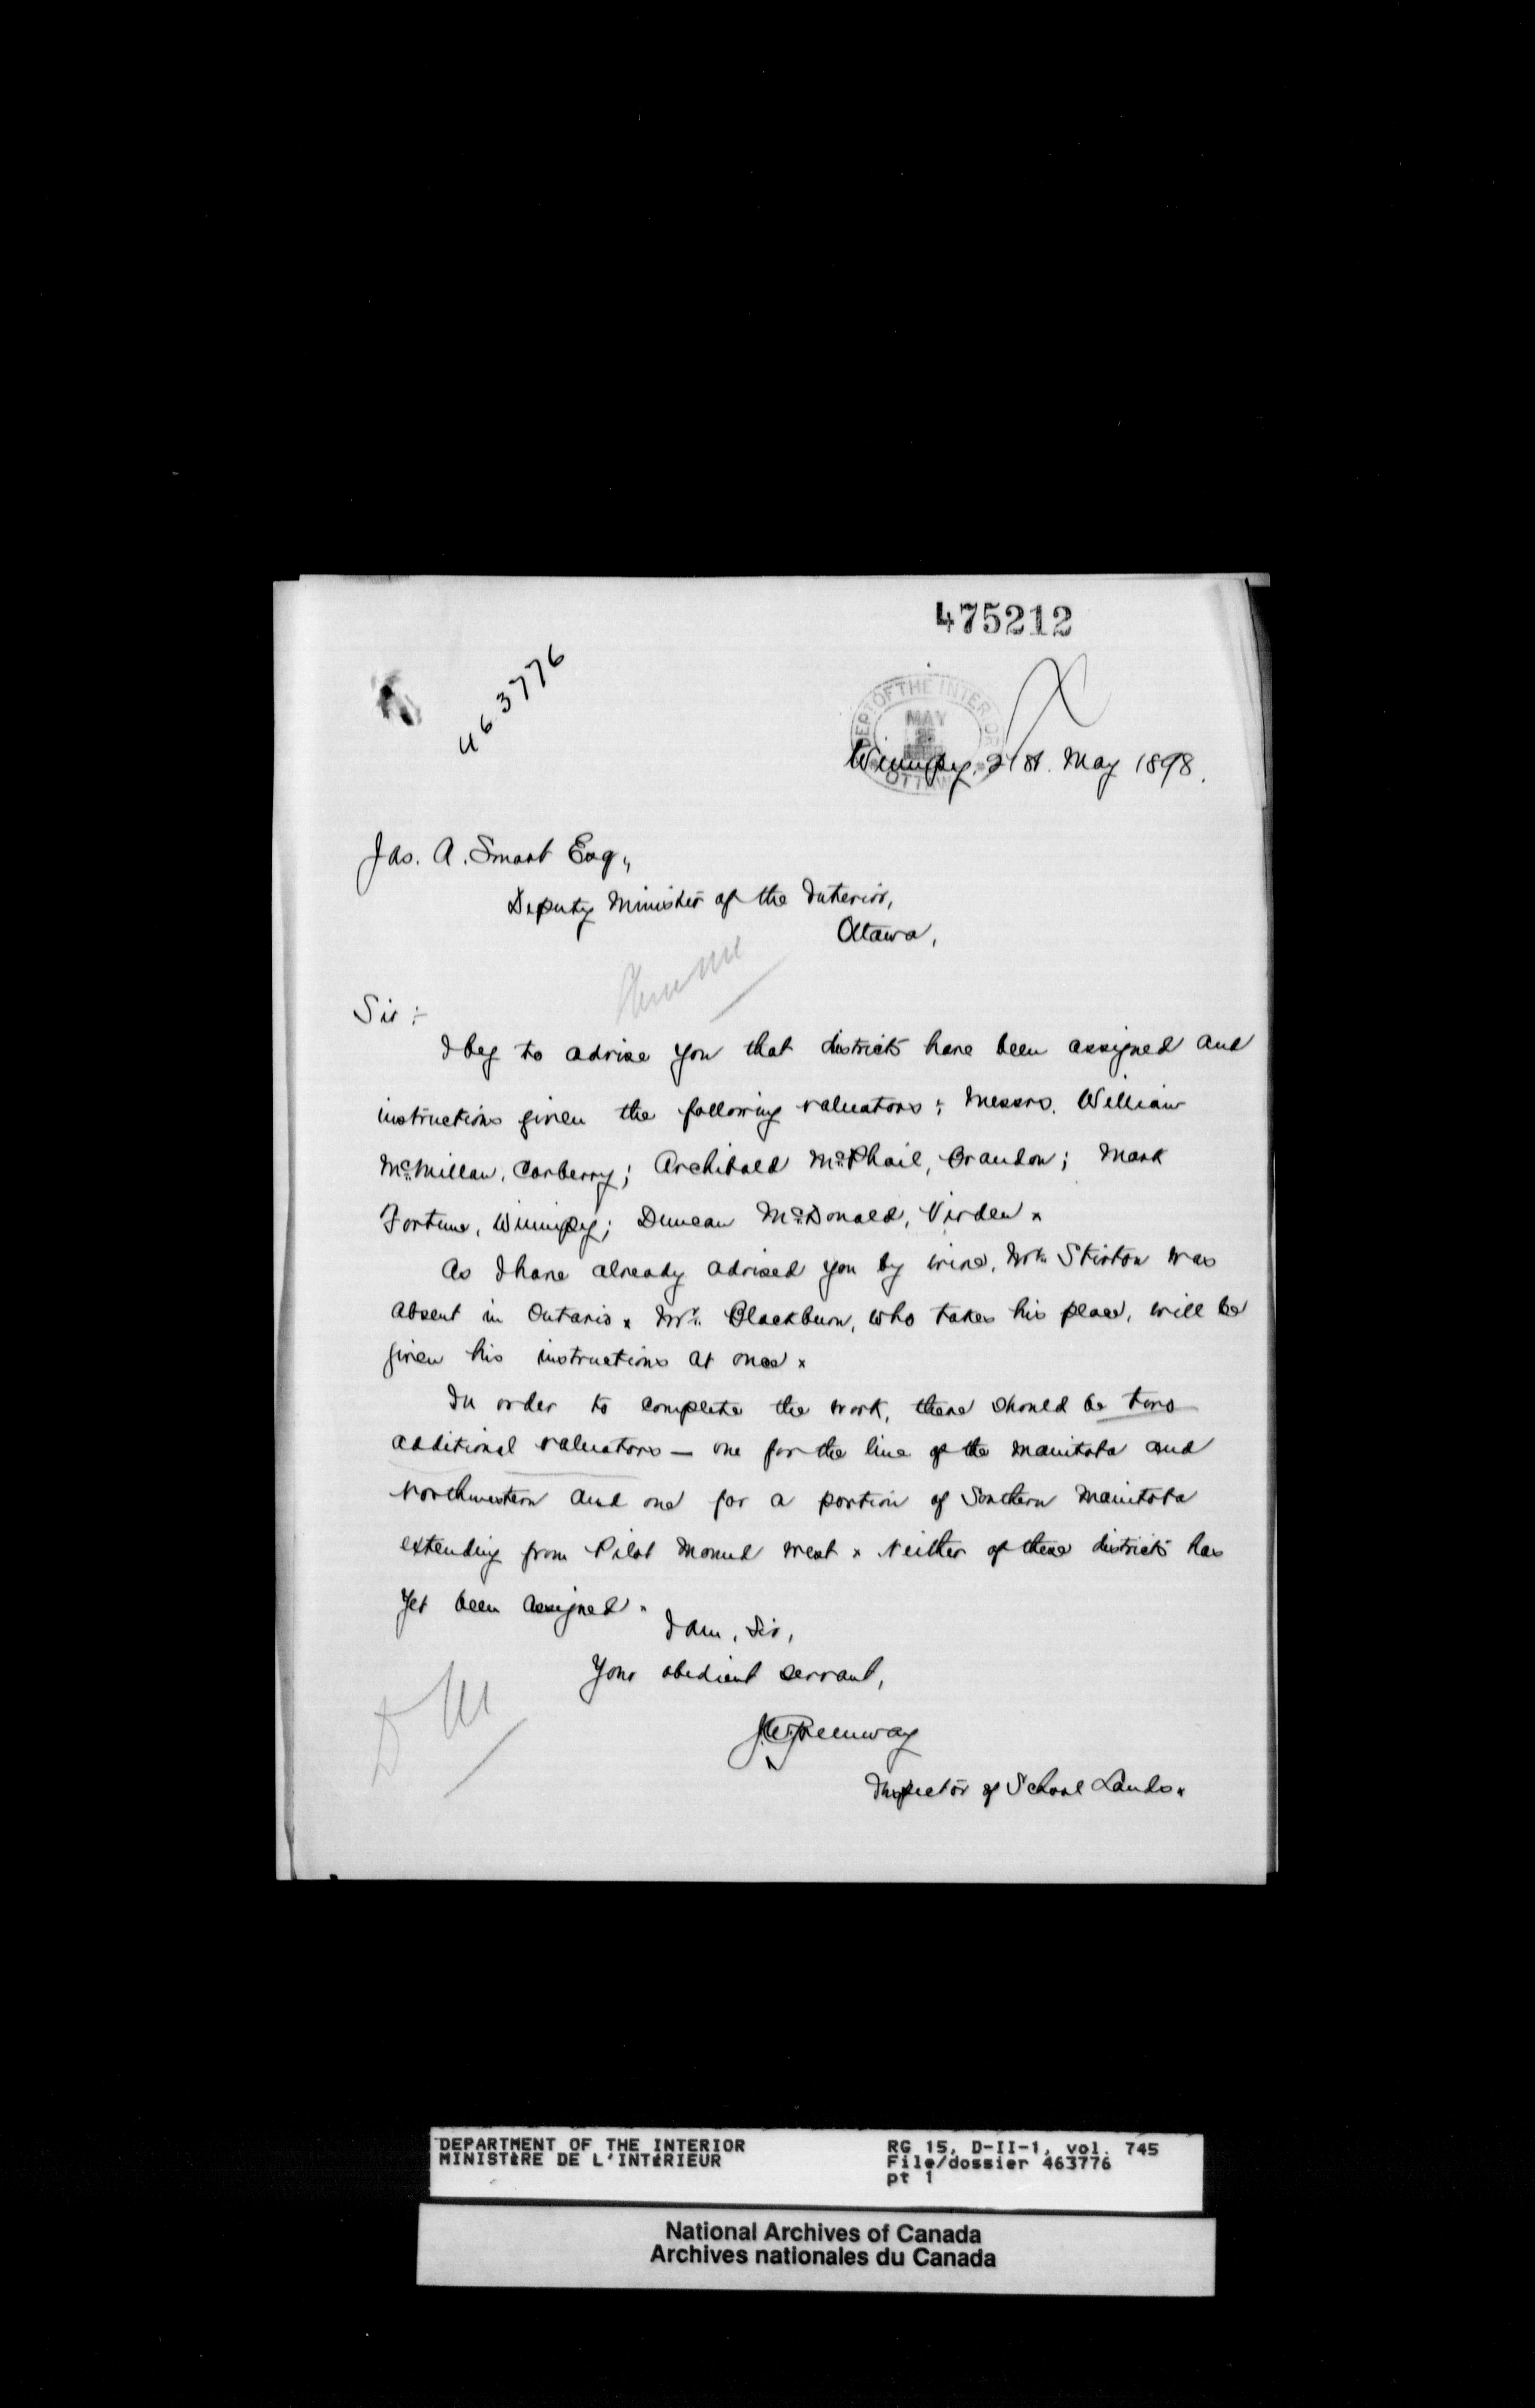 475212
463776
DEPT OF THE INTERIOR
MAY
25
OTTAWA
Winnipeg, 21st. May 1898.
Jas. A. Smart Esq.,
Deputy Minister of the Interior,
Ottawa,
Sir :-
I beg to advise you that districts have been assigned and
instructions given the following valuators: Messrs. William
McMillan, Carberry; Archibald McPhail, Brandon; Mark
Fortune, Winnipeg; Duncan McDonald, Virden x
As I have already advised you by wire, Mr. Stirton was
absent in Ontario x Mr. Blackburn, who takes his place, will be
given his instructions at once x
In order to complete the work, there should be two
additional valuators — one for the line of the Manitoba and
Northwestern and one for a portion of Southern Manitoba
extending from Pilot Mound west x Neither of these districts has
yet been assigned x
I am, Sir,
Your obedient servant,
J.W. Greenway
Inspector of School Lands x
DM
DEPARTMENT OF THE INTERIOR
MINISTÈRE DE L'INTÉRIEUR
RG 15, D-II-1, vol. 745
File/dossier 463776
pt 1
National Archives of Canada
Archives nationales du Canada